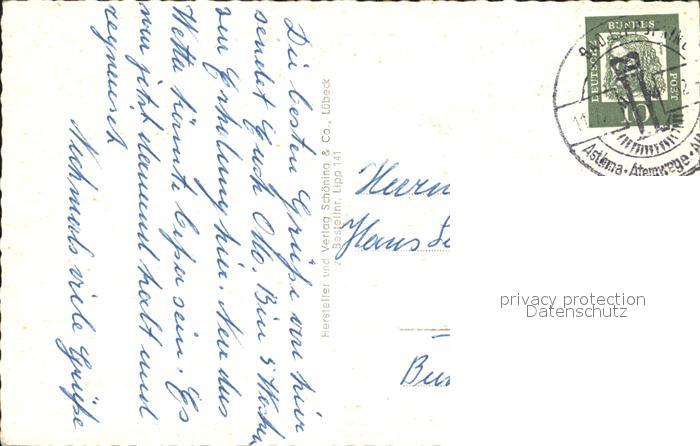 Die besten Grüße von hier
sendet Euch Otto. Bin 5 Wochen
zur Erholung hier. Nur das
Wetter könnte besser sein. Es
nun jetzt dauernd kalt und
regnerisch
Nochmals viele Grüße
Hersteller und Verlag Schöning & Co., Lübeck
Bestellnr. Lipp 141
Herrn
Hans
DEUTSCHE
BUNDES
POST
10
Asthma · Atemwege ·
privacy protection
Datenschutz